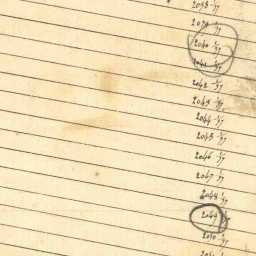 2038 1/17
2039 1/17
2040 1/17
2041 1/17
2042 1/17
2043 1/17
2044 1/17
2045 1/17
2046 1/17
2047 1/17
2048 1/17
2049
2050 1/17